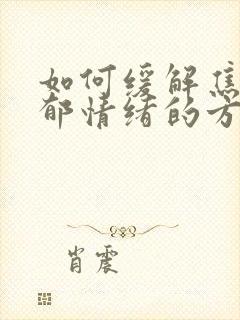 如何缓解焦
郁情绪的方
肖震